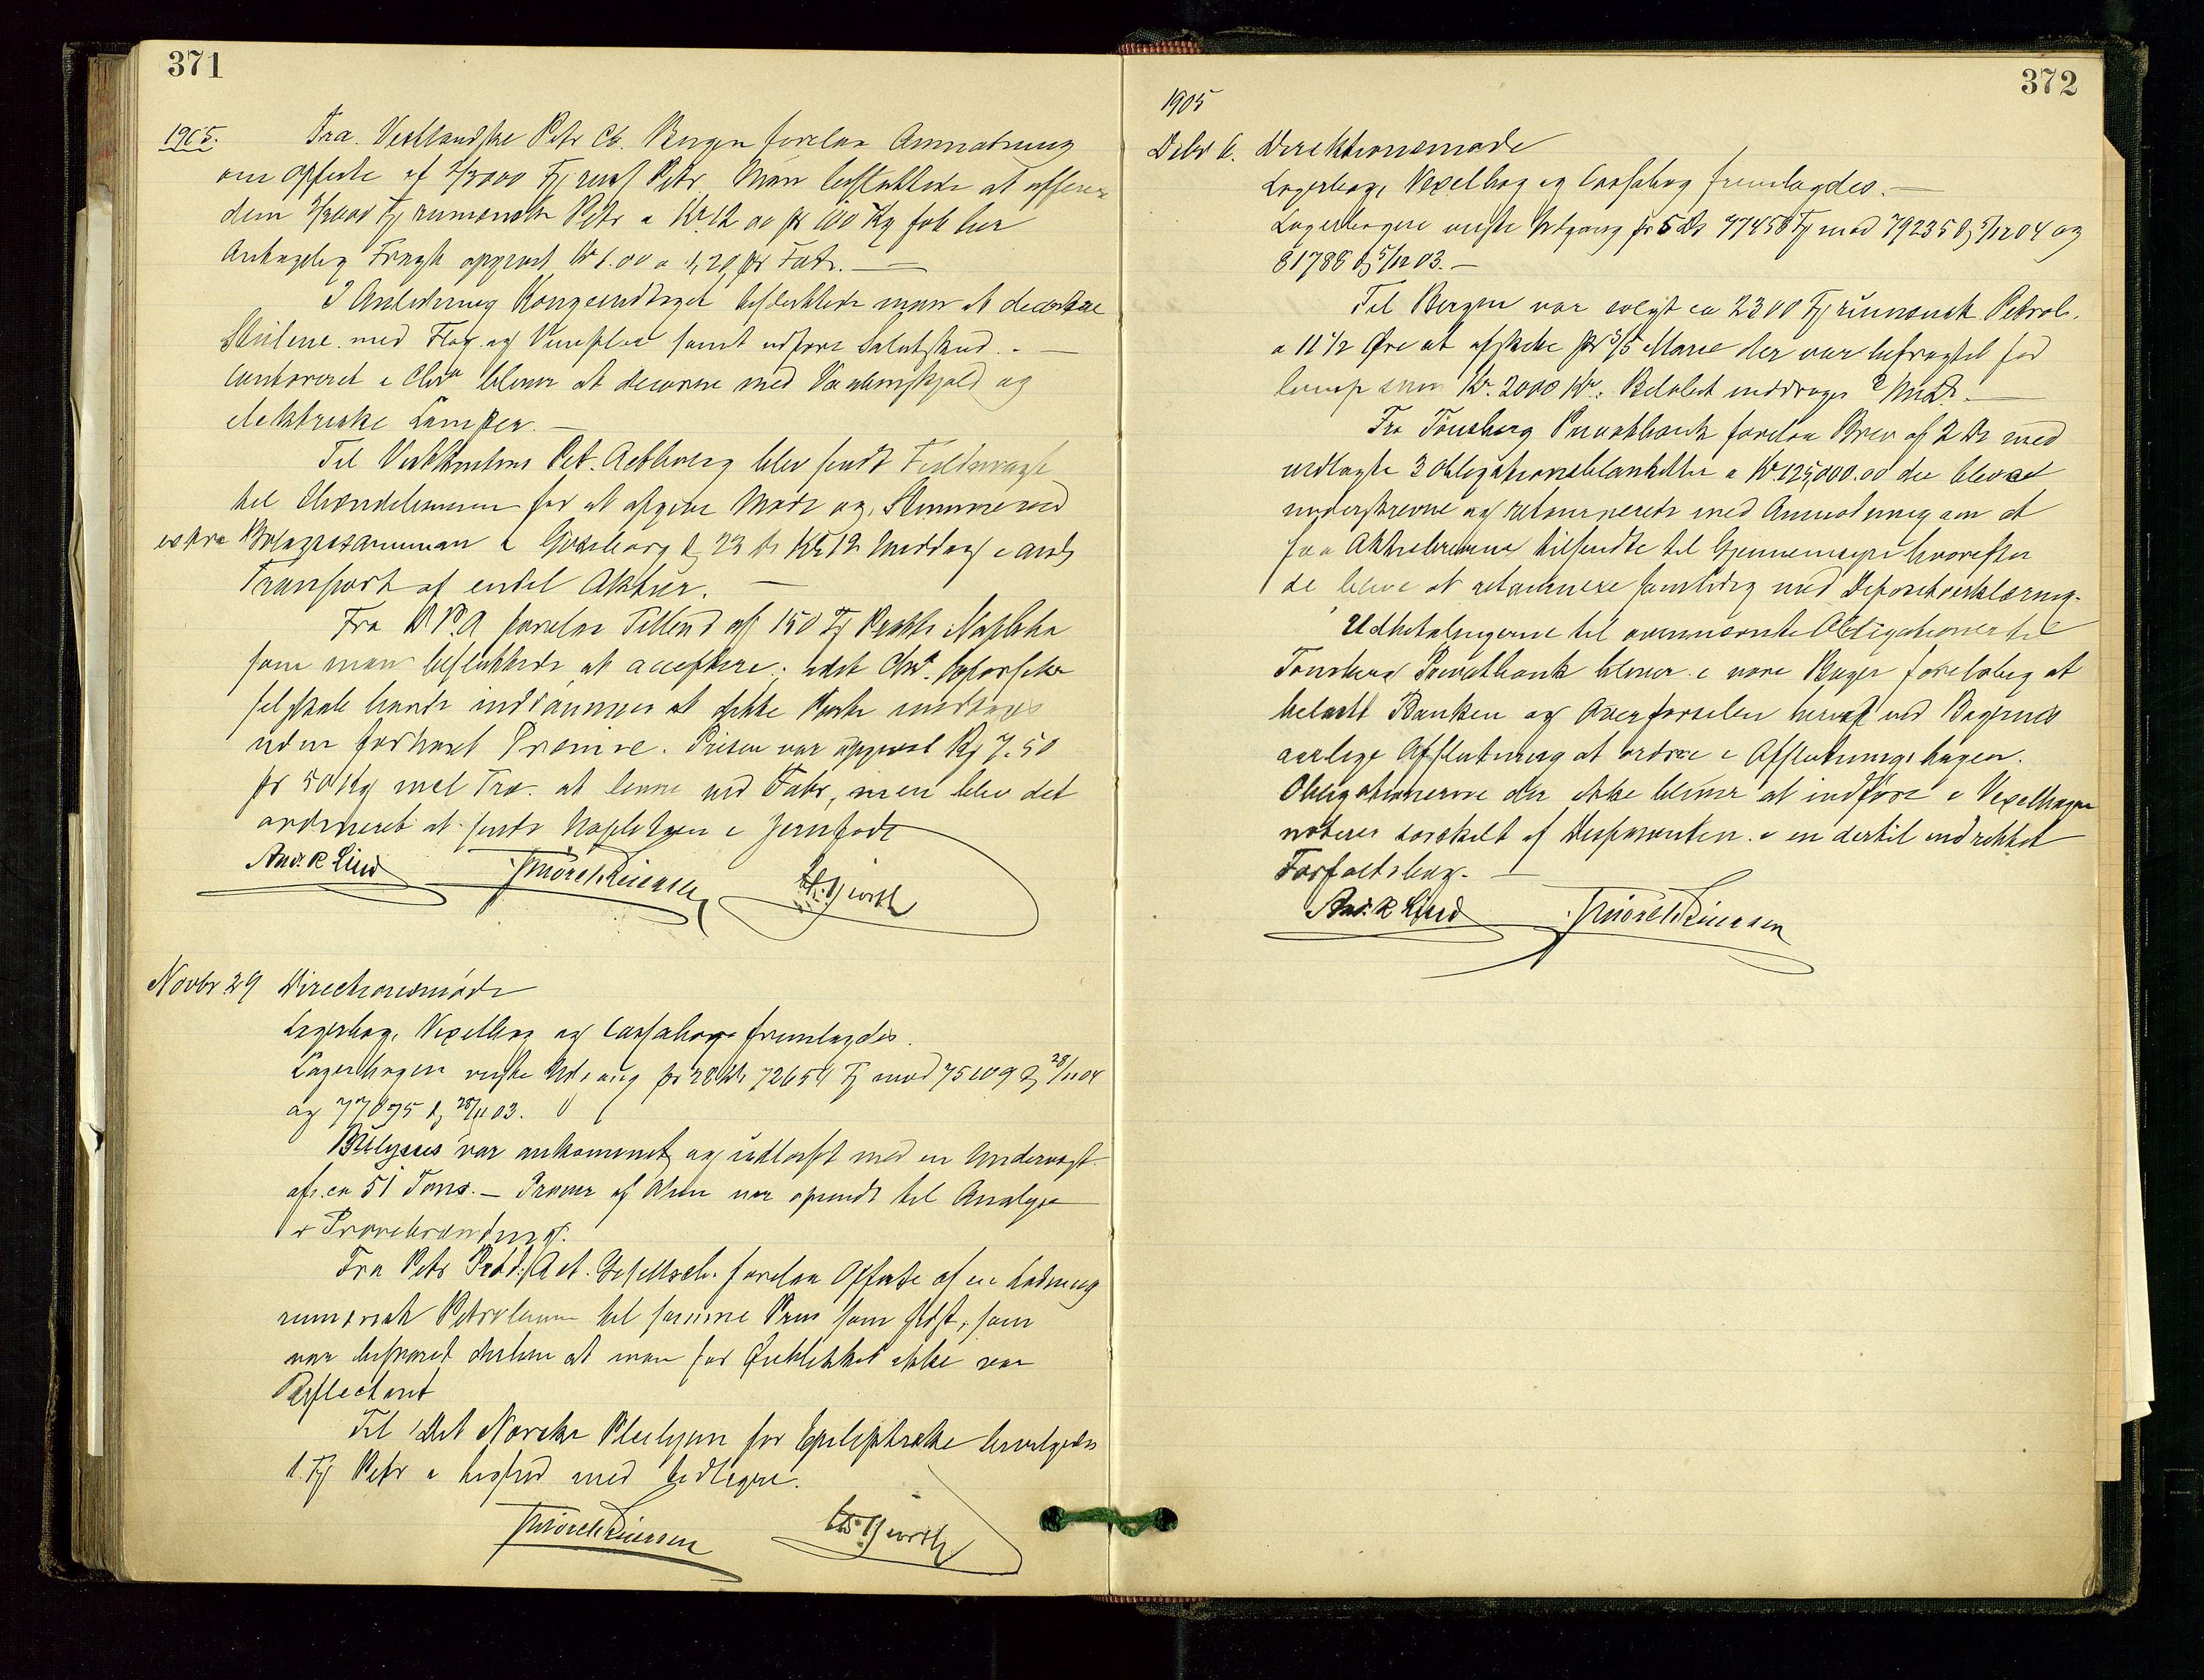 371
1905. Fra Vestlandske Petr Co. Bergen forelaa Anmodning
om Offerte af 2/3000 Fj rum. Petr. Man besluttede at offerere
dem 2/3000 Fj rumænsk Petr a Kr. 12.00 pr 100 Kg fob her
Antagelig Fragt opgivet Kr 1.00 a 1,20 pr Fat. —
I Anledning Kongeindtoget besluttede man at decorere
med Flag og Vimpler samt udføre Salutskud. —
Contoret i Chra bliver at decorere med Vaabenskjold og
elektriske Lamper. —
Til Vestkustens Pet. Aktb. blev sendt Fuldmagt
til for at afgive Møde og Stemme ved
extra Bolagsstämman i Göteborg d 23 ds Kl. 12 Middag i anl.
Transport af endel Aktier. —
Fra D.P.A. forelaa Tilbud af 150 Fj Naphtha
som man besluttede at acceptere, idet
selskab havde indrømmet at dette Parti modtages
uden forhøiet Præmie. Prisen var opgivet 7.50
pr 50 Kg incl Træ. at levere ved Fabr, men blev det
ordineret at sende Naphthaen i Jernfade
And. R Lind
Novbr 29 Directionsmøde
Lagerbog, Vexelbog og Cassabog fremlagdes.
Lagerbogen viste Udgang pr 28 ds 72654 Fj mod 75109 d 28/11 04
og 77875 d 28/11 03.
Ulysses var ankommet og udlosset med en Undervægt
af ca 51 Tons. — Prøver af Olien var opsendt til Analyse
& Prøvebrænding.
Fra Petr Prod. Act. Gesellsch. forelaa Offerte af en Ladning
rumænsk Petroleum til samme Pris som sidst, som
var besvaret derhen at man for Øieblikket ikke var
Reflectant
Til Det Norske Pleiehjem for Epileptiske bevilgedes
1 Fj Petr i Lighed med tidligere.
372
1905
Debr 6. Direktionsmøde
Lagerbog, Vexelbog og Cassabog fremlagdes. —
Lagerbogen viste Udgang pr 5 ds 77458 Fj mod 79235 d 5/12 04 og
81788 d 5/12 03. —
Til Bergen var solgt ca 2300 Fj rumænsk Petrol.
a 11 1/2 Øre at afskibe pr S/S Marie der var befragtet for
lumpsum Kr. 2000 Kr. Beløbet inddrages 2 Mdr. —
Fra Tönsberg Privatbank forelaa Brev af 2 ds med
vedlagte 3 Obligationsblanketter a Kr. 125,000.00 der blev
underskrevne og returnerede med Anmodning om at
faa Aktiebrevene tilsendte til Gjennemsyn hvorefter
de bliver at returnere samtidig med Depositerklæring.
Udbetalingerne til ovennævnte Obligationer til
Tönsberg Privatbank bliver i vore Bøger foreløbig at
belaste Banken og Overførselen heraf ved Bøgernes
aarlige Afslutning at ordne i Afslutningsbogen.
Obligationerne der ikke bliver at indføre i Vexelbogen
noteres særskilt af Disponenten i en dertil indrettet
Forfaldsbog. —
And. R Lind